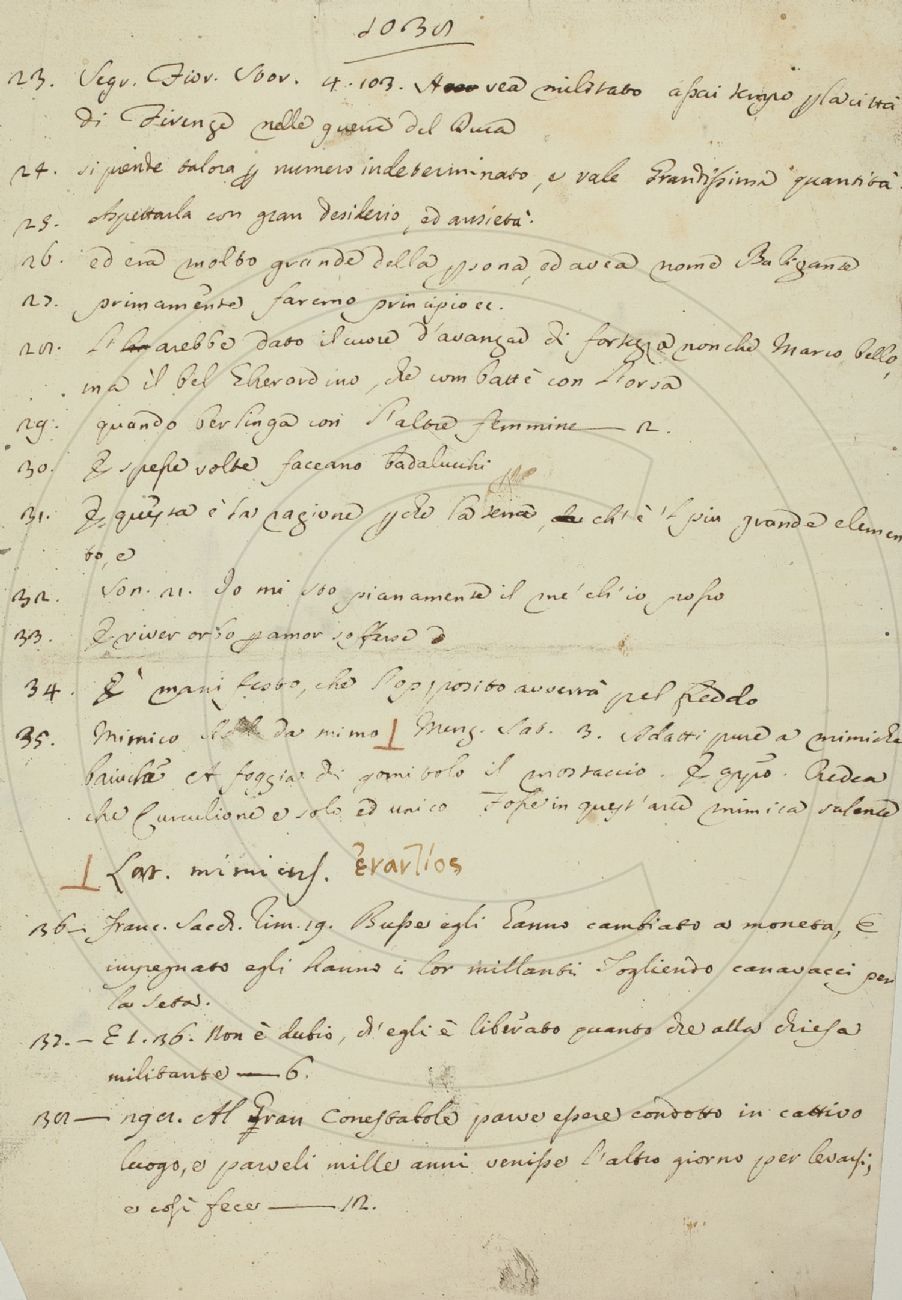 1038
23. Segr. Fior. Stor. 4. 103. Avea militato assai tempo p la città
di Firenze nelle guerre del Duca
24. si prende talora p numero indeterminato, e vale Grandissima quantità.
25. Aspettarla con gran desiderio, ed ansietà.
26. ed era molto grande della psona, ed avea nome Baligante
27. primamente faremo principio ec.
28. L' arebbe dato il cuore d'avanzare di fortezza nonchè Marco bello,
ma il bel Gherardino, che combattè con l'orsa
29. quando berlinga con l'altre femmine — 2.
30. E spesse volte faceano badalucchi
31. E questa è la ragione pchè la terra, ch'è 'l più grande elemen
to, e
32. Son. 21. Io mi sto pianamente il me' ch'io posso
33. E viver orbo p amor sofferse
34. E' manifesto, che l'opposito avverrà pel freddo
35. Mimico da mimo ⊥ Menz. Sat. 3. Adatti pure a mimiche
A foggia di gomitolo il mostaccio. E Creda
che Curculione e solo, ed unico Fosse in quest'arte mimica valente
⊥ Lat. mimicus.
36 — Franc. Sacch. rim. 19. Busse egli hanno cambiato a moneta, E
impegnato egli hanno i lor millanti Togliendo canavacci per
la seta.
37. — E l. 36. Non è dubio, ch'egli è liberato quanto che alla chiesa
militante — 6.
38 — 198. Al Gran Conestabole parve essere condotto in cattivo
luogo, e parveli mille anni venisse l'altro giorno per levarsi;
e così fece — 12.